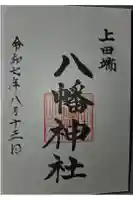 上田端
八幡神社
令和七年八月十三日